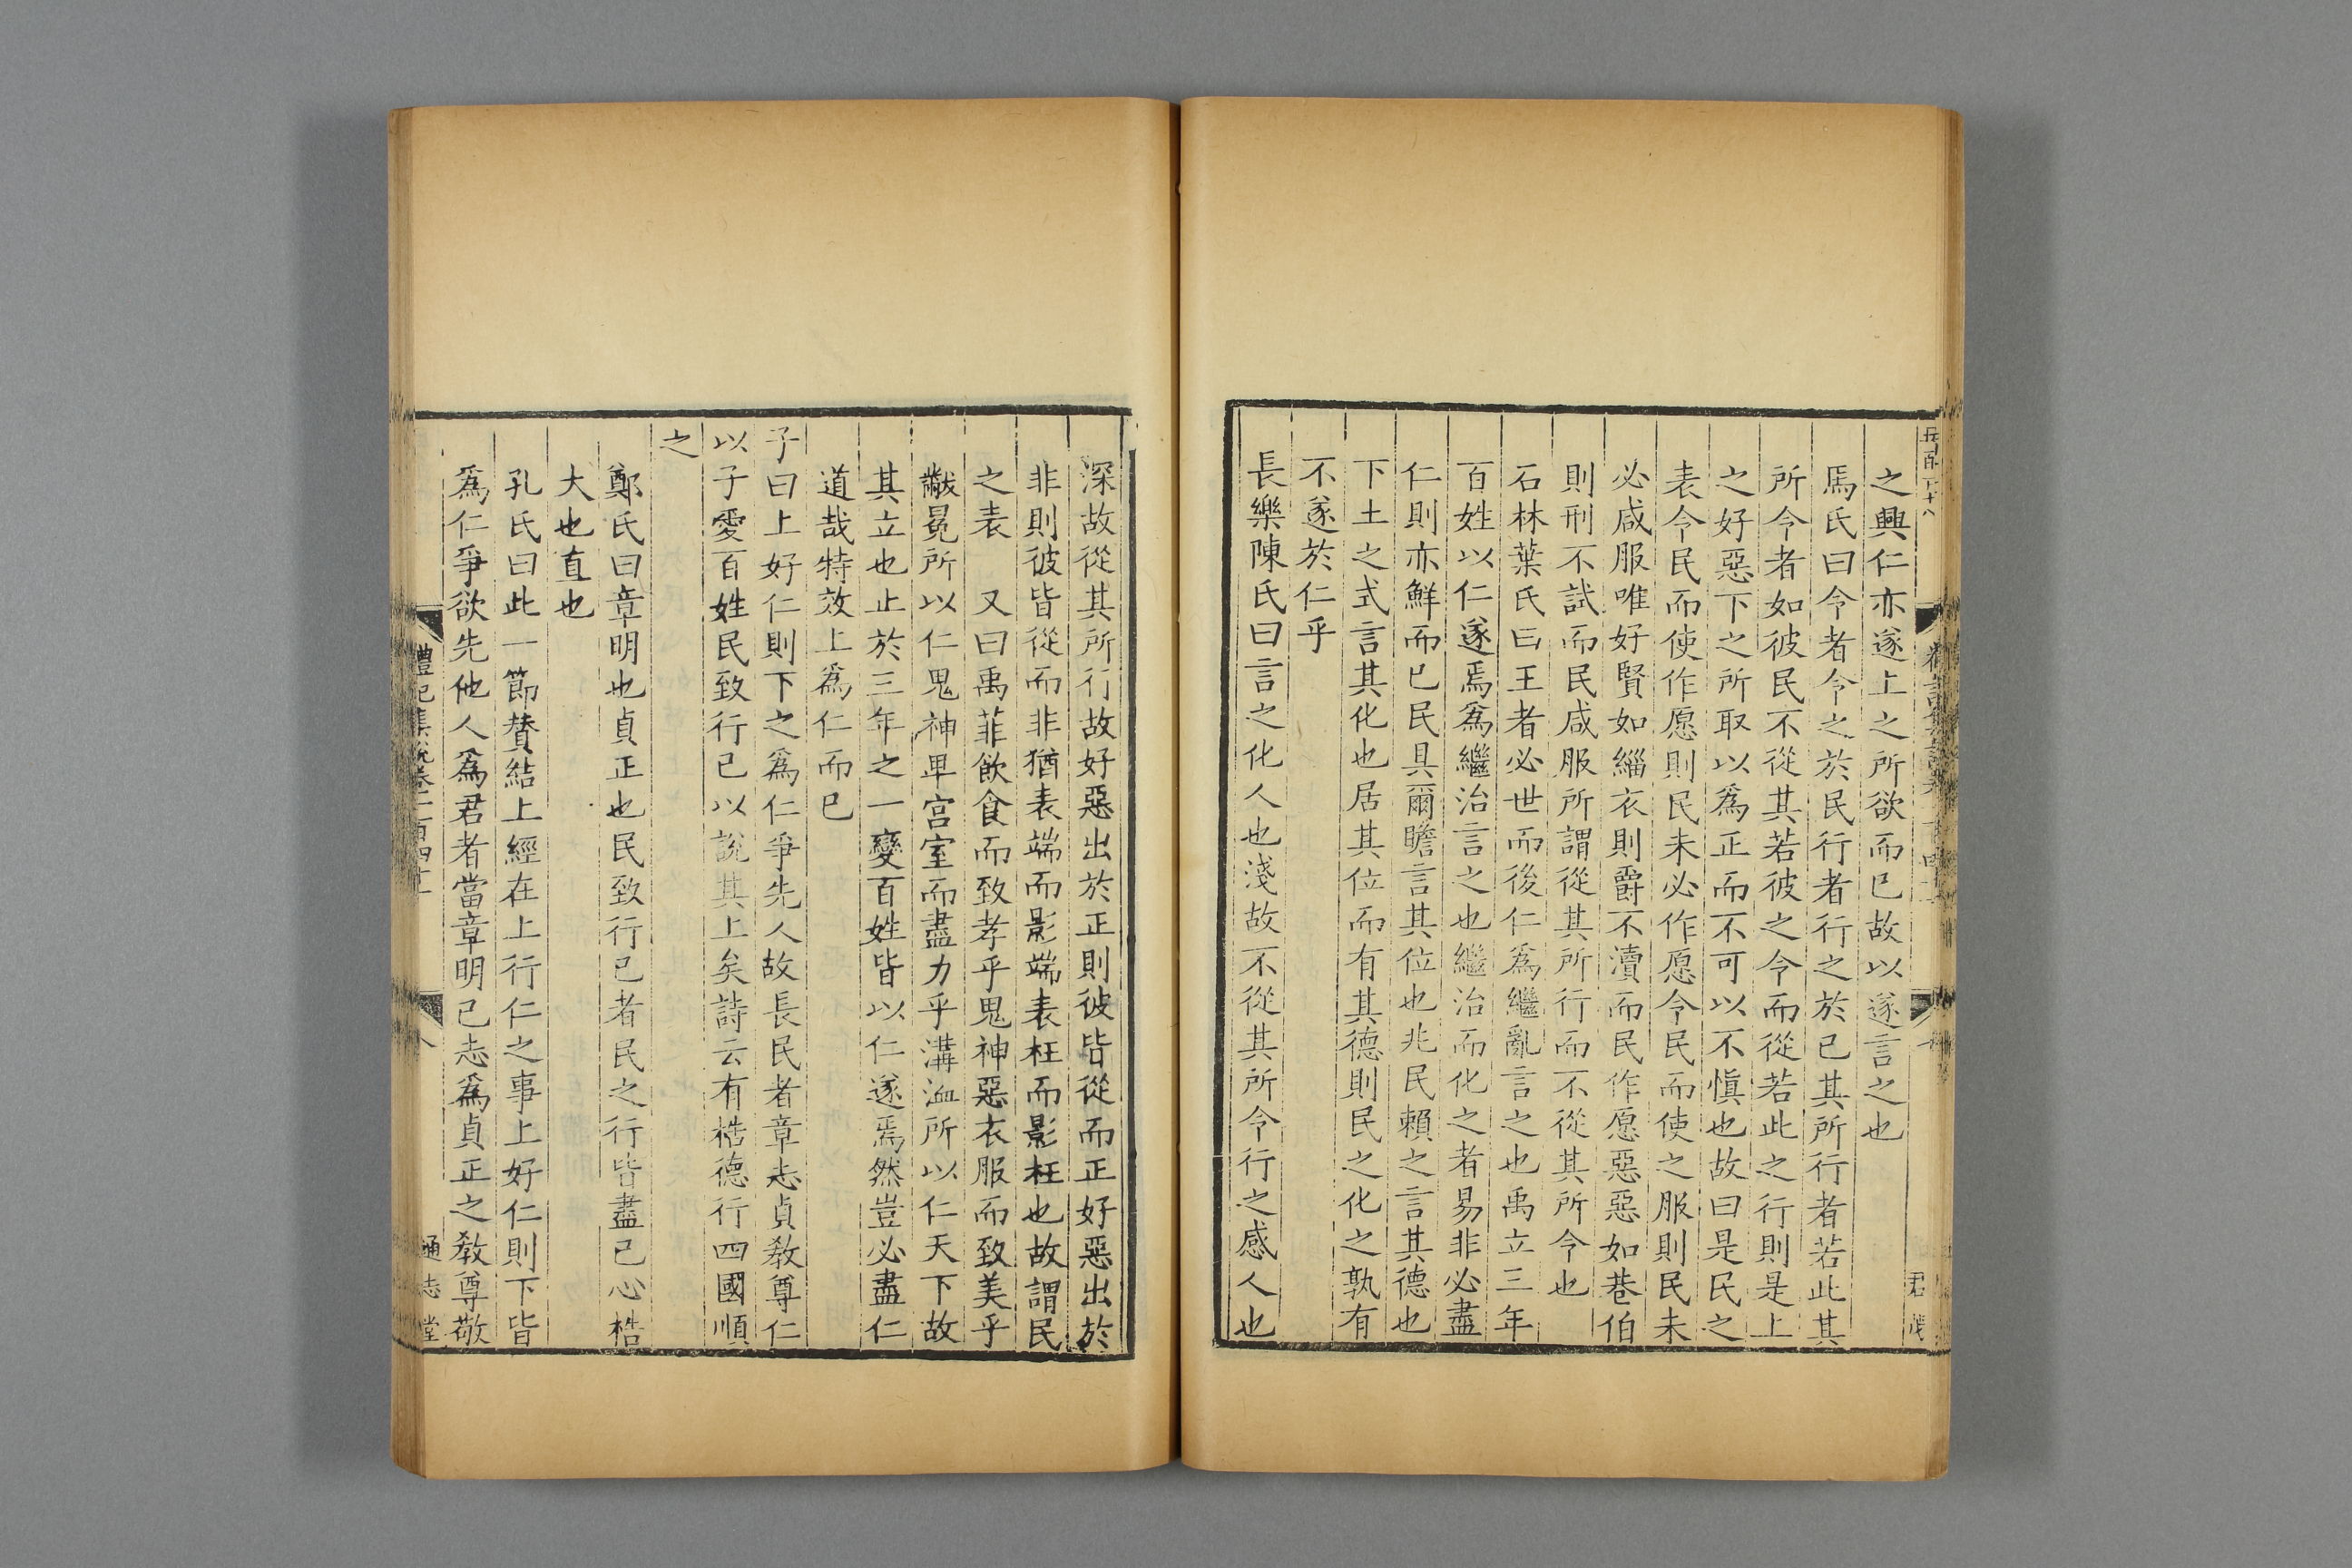 之興仁亦遂上之所欲而已故以遂言之也
馬氏曰令者令之於民行者行之於已其所行者若此其
所令者如彼民不從其若彼之令而從若此之行則是上
之好惡下之所取以爲正而不可以不愼也故曰是民之
表令民而使作愿則民未必作愿令民而使之服則民未
必咸服唯好賢如緇衣則爵不瀆而民作愿惡惡如巷伯
則刑不試而民咸服所謂從其所行而不從其所令也
石林葉氏曰王者必世而後仁爲繼亂言之也禹立三年
百姓以仁遂焉爲繼治言之也繼治而化之者易非必盡
仁則亦鮮而已民具爾瞻言其位也兆民賴之言其德也
下土之式言其化也居其位而有其德則民之化之孰有
不遂於仁乎
長樂陳氏曰言之化人也淺故不從其所令行之感人也
君茂
深故從其所行故好惡出於正則彼皆從而正好惡出於
非則彼皆從而非猶表端而影端表枉而影枉也故謂民
之表　又曰禹菲飲食而致孝乎鬼神惡衣服而致美乎
黻冕所以仁鬼神卑宫室而盡力乎溝洫所以仁天下故
其立也止於三年之一變百姓皆以仁遂焉然豈必盡仁
道哉特效上爲仁而已
子曰上好仁則下之爲仁爭先人故長民者章志貞敎尊仁
以子愛百姓民致行已以說其上矣詩云有梏德行四國順
之
鄭氏曰章明也貞正也民致行已者民之行皆盡己心梏
大也直也
孔氏曰此一節賛結上經在上行仁之事上好仁則下皆
爲仁爭欲先他人爲君者當章明己志爲貞正之敎尊敬
禮記集說卷一百四十一
八
通志堂